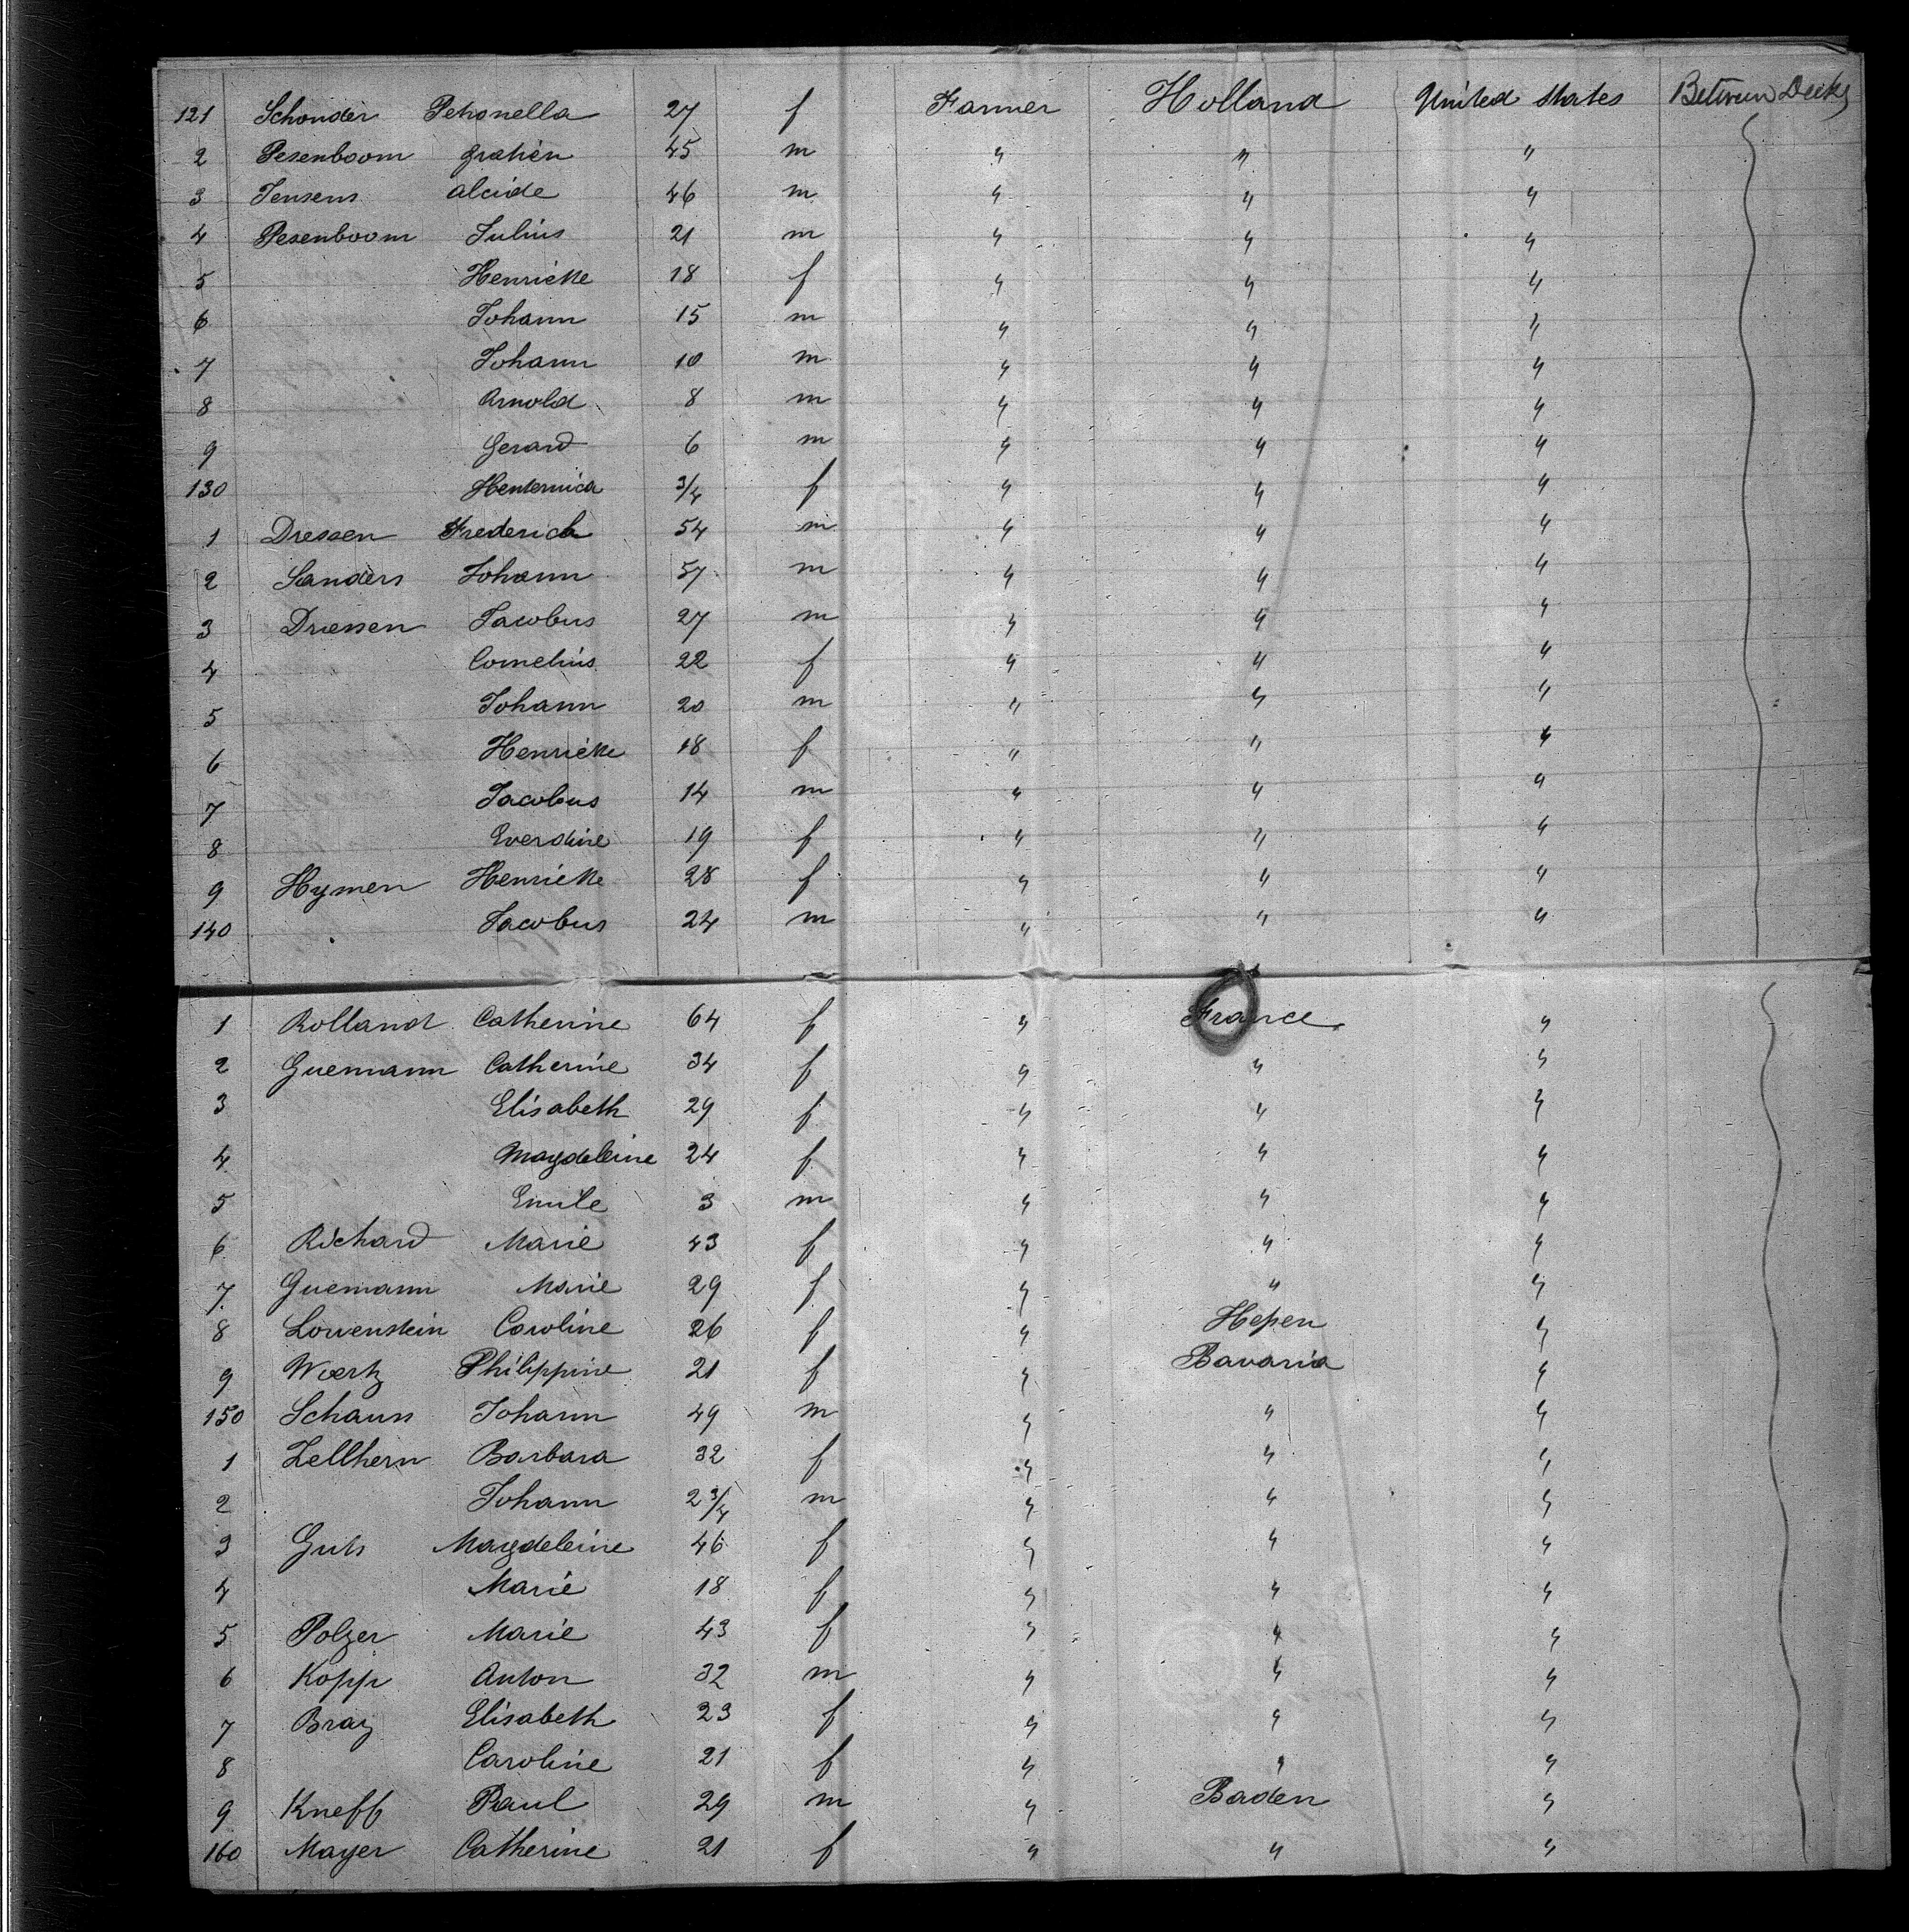 121 Schonder Petronella 27 f Farmer Holland United States Between Decks
2 Pesenboom Gratien 45 m " " "
3 Jensens Alcide 46 m " " "
4 Pesenboom Julius 21 m " " "
5 Henriette 18 f " " "
6 Johann 15 m " " "
7 Johann 10 m " " "
8 Arnold 8 m " " "
9 Gerard 6 m " " "
130 3/4 f " " "
1 Dressen Frederich 54 m " " "
2 Sanders Johann 57 m " " "
3 Driessen Jacobus 27 m " " "
4 Cornelius 22 f " " "
5 Johann 20 m " " "
6 Henriette 18 f " " "
7 Jacobus 14 m " " "
8 Everdine 19 f " " "
9 Hymen Henriette 28 f " " "
140 Jacobus 24 m " " "
1 Rolland Catherine 64 f " France "
2 Guemann Catherine 34 f " " "
3 Elisabeth 29 f " " "
4 Magdeleine 24 f " " "
5 Emile 3 m " " "
6 Richard Marie 43 f " " "
7 Guemann Marie 29 f " " "
8 Lowenstein Caroline 26 f " Hessen "
9 Woertz Philippine 21 f " Bavaria "
150 Schaus Johann 49 m " " "
1 Zellhern Barbara 32 f " " "
2 Johann 2 3/4 m " " "
3 Guts Magdeleine 46 f " " "
4 Marie 18 f " " "
5 Polzer Marie 43 f " " "
6 Kopp Anton 32 m " " "
7 Bray Elisabeth 23 f " " "
8 Caroline 21 f " " "
9 Kneff Paul 29 m " Baden "
160 Mayer Catherine 21 f " " "